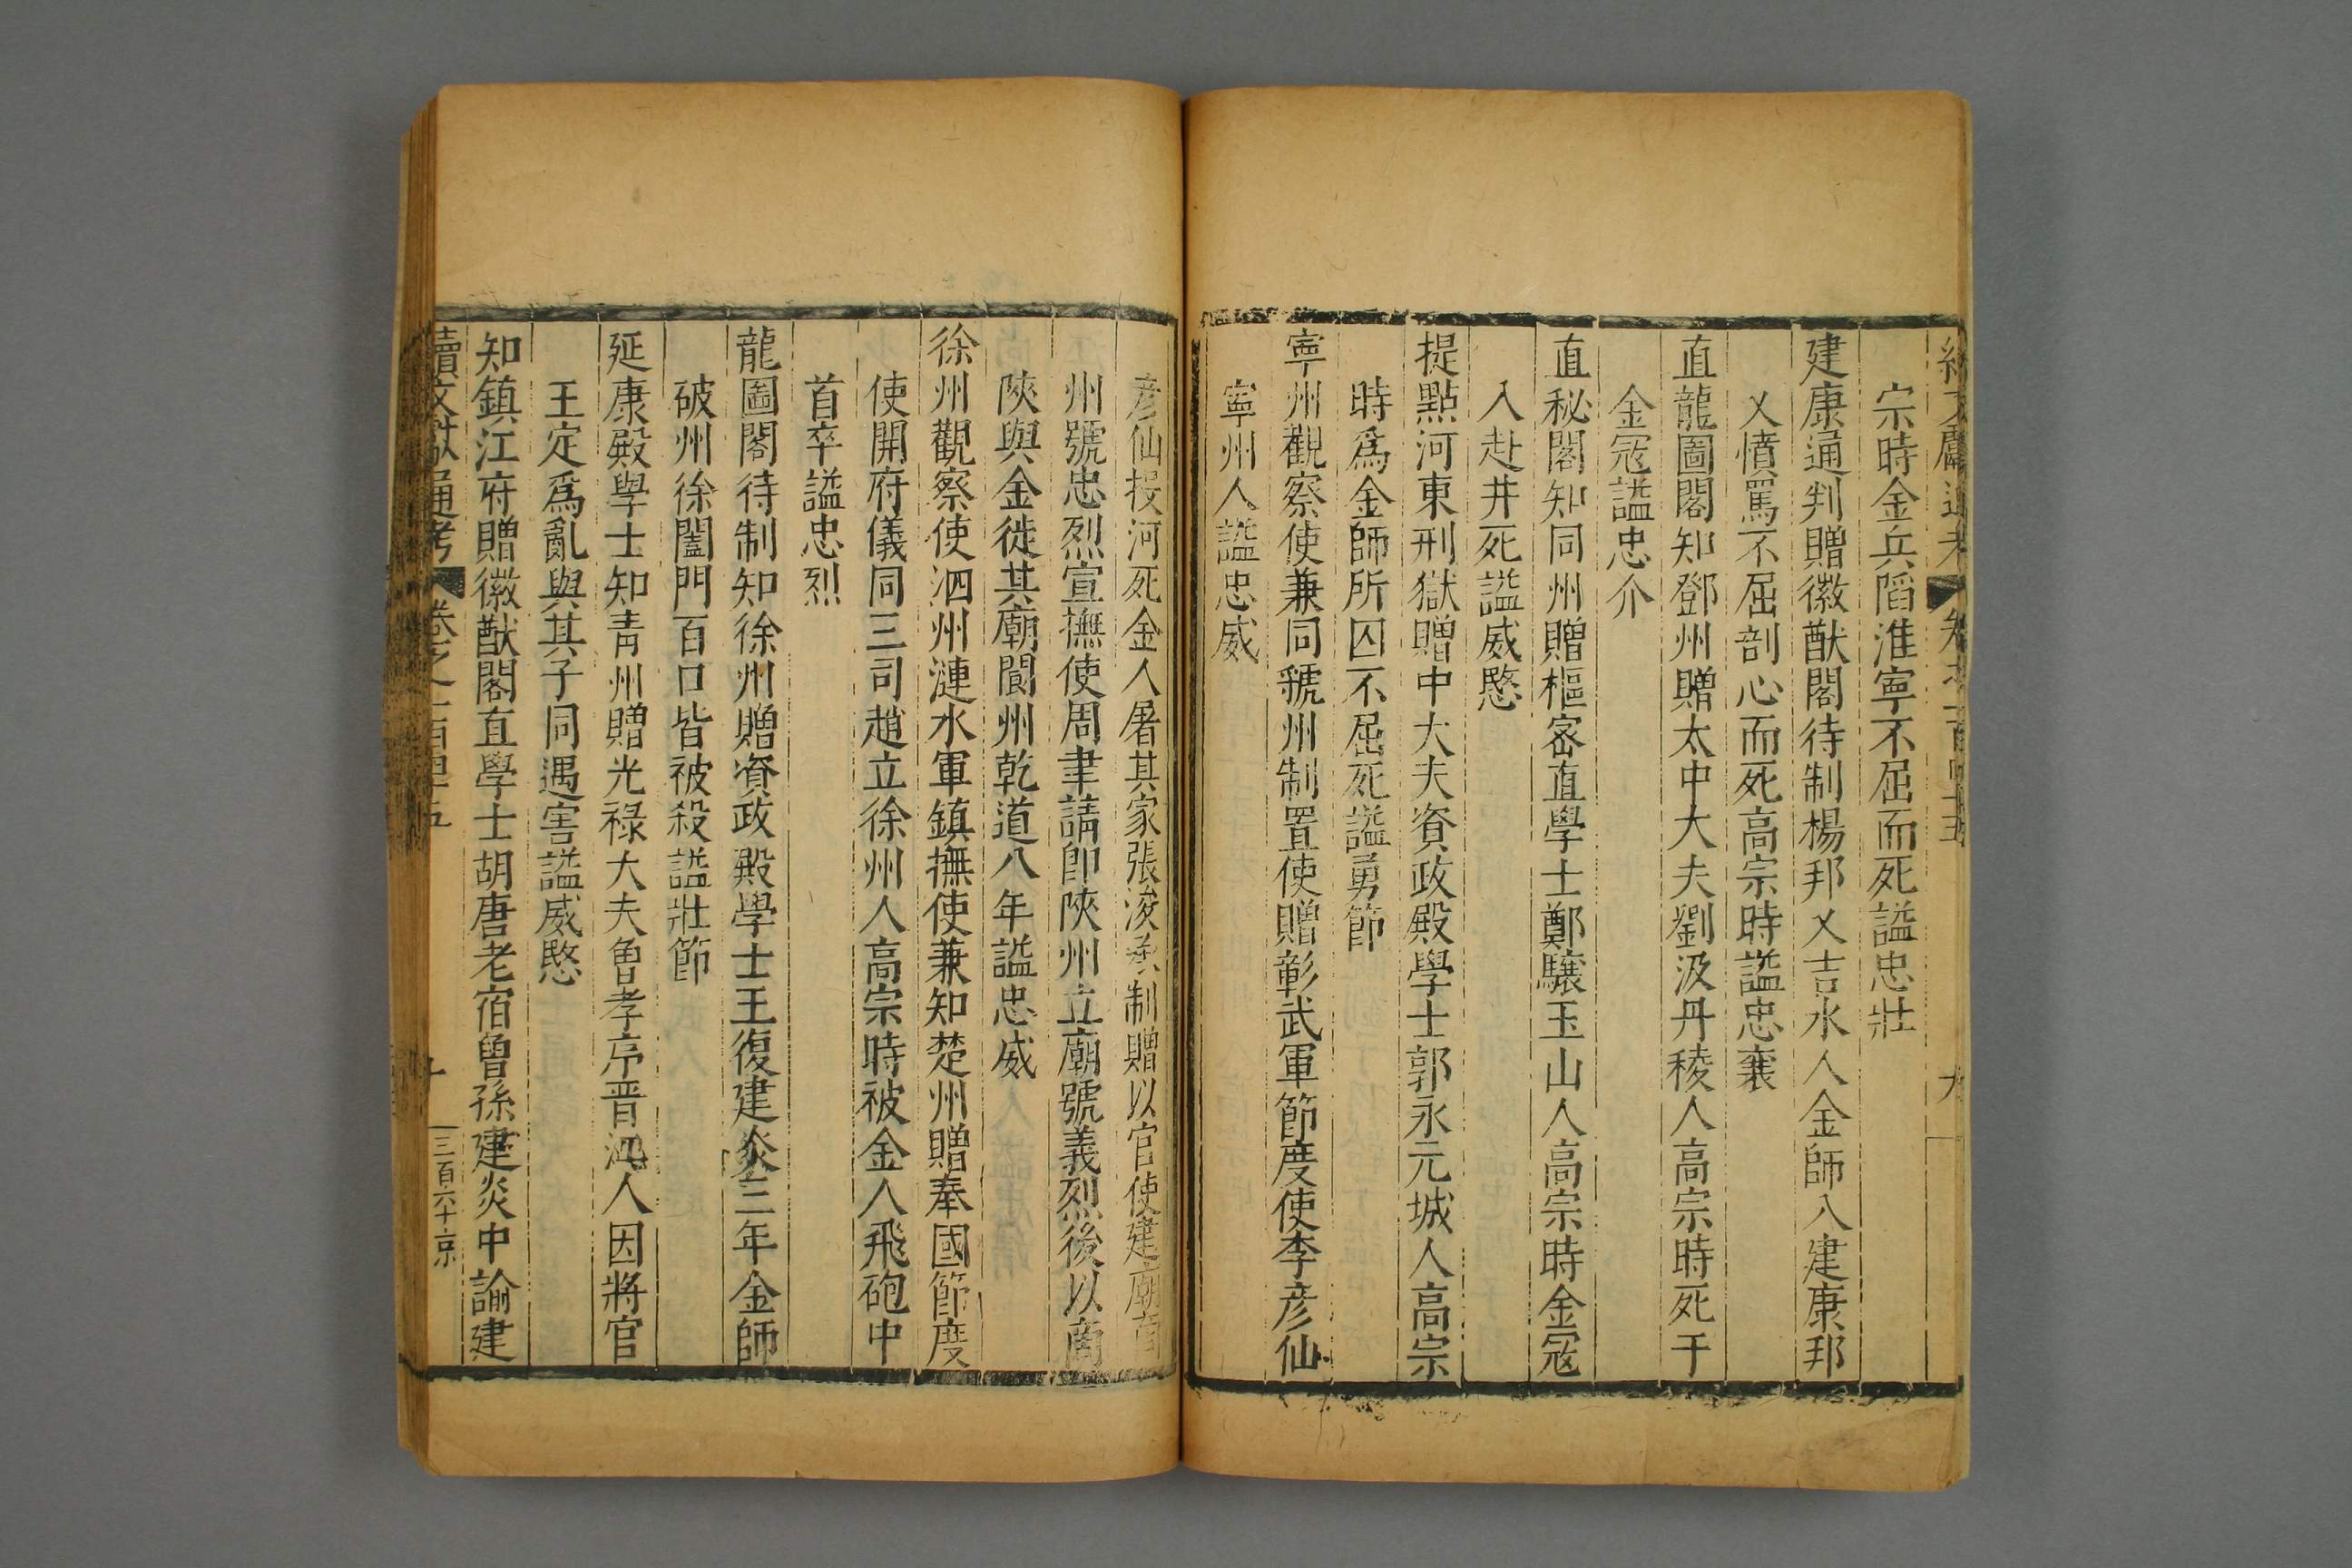 宗時金兵䧟淮寧不屈而死謚忠壯
建康通判贈徽猷閣待制楊邦乂吉水人金師入建康邦
乂憤罵不屈剖心而死高宗時謚忠襄
直龍圖閣知鄧州贈太中大夫劉汲丹稜人高宗時死于
金冦謚忠介
直秘閣知同州贈樞密直學士鄭驤玉山人高宗時金冦
入赴井死謚威愍
提點河東刑獄贈中大夫資政殿學士郭永元城人高宗
時爲金師所囚不屈死謚勇節
寧州觀察使兼同虢州制置使贈彰武軍節度使李彦仙
寧州人謚忠威
彦仙投河死金人屠其家張浚承制贈以官使建廟商
州號忠烈宣撫使周聿請即陝州立廟號義烈後以商
陝與金徙其廟閬州乾道八年謚忠威
徐州觀察使泗州漣水軍鎮撫使兼知楚州贈奉國節度
使開府儀同三司趙立徐州人高宗時被金人飛砲中
首卒謚忠烈
龍圖閣待制知徐州贈資政殿學士王復建炎三年金師
破州徐闔門百口皆被殺謚壯節
延康殿學士知青州贈光祿大夫魯孝序晋人因將官
王定爲亂與其子同遇害謚威愍
知鎮江府贈徽猷閣直學士胡唐老宿曾孫建炎中諭建
續文獻通考 卷之一百四十五 十 三百六十京